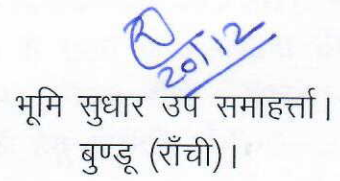 20/12
भूमि सुधार उप समाहर्त्ता।
बुण्डू (राँची)।